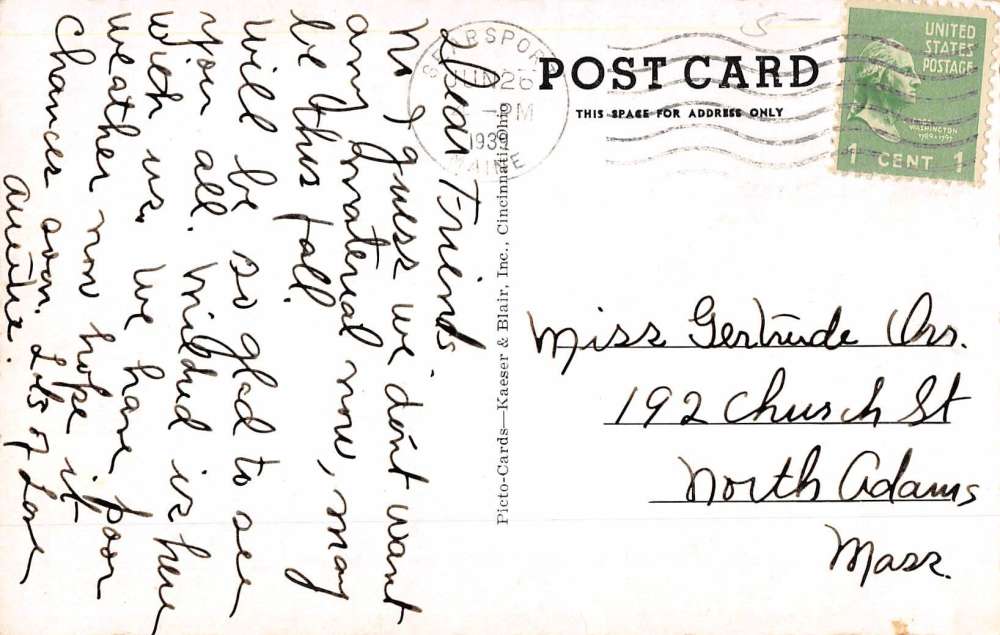 Dear Friends
No I guess we don't want
any material now, may
be this fall.
Will be so glad to see
you all. Mildred is here
with us. We have poor
weather now hope it
changes soon. Lots of Love
SEARSPORT
JUN 26
PM
1939
MAINE
POST CARD
THIS SPACE FOR ADDRESS ONLY
UNITED
STATES
POSTAGE
WASHINGTON
1789-1797
1 CENT 1
Picto-Cards—Kaeser & Blair, Inc., Cincinnati, Ohio
Miss Gertrude Orr.
192 Church St
North Adams
Mass.